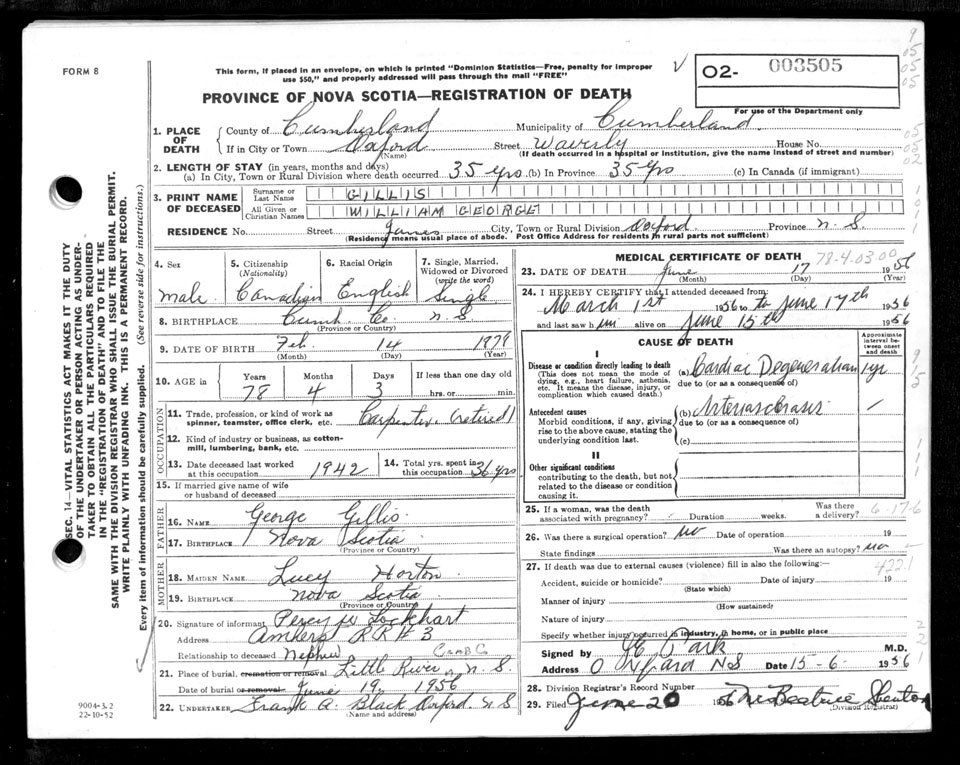 FORM 8
This form, if placed in an envelope, on which is printed "Dominion Statistics—Free, penalty for improper
use $50," and properly addressed will pass through the mail "FREE"
02- 003505
For use of the Department only
PROVINCE OF NOVA SCOTIA—REGISTRATION OF DEATH
1. PLACE OF DEATH
County of Cumberland Municipality of Cumberland
If in City or Town Oxford Street Waverly House No.
(Name) (If death occurred in a hospital or institution, give the name instead of street and number)
2. LENGTH OF STAY (in years, months and days)
(a) In City, Town or Rural Division where death occurred 35 yrs (b) In Province 35 yrs (c) In Canada (if immigrant)
3. PRINT NAME OF DECEASED
Surname or Last Name GILLIS
All Given or Christian Names WILLIAM GEORGE
RESIDENCE No. Street James City, Town or Rural Division Oxford Province N.S.
(Residence means usual place of abode. Post Office Address for residents in rural parts not sufficient)
4. Sex
male
5. Citizenship (Nationality)
Canadian
6. Racial Origin
English
7. Single, Married, Widowed or Divorced (write the word)
Single
8. BIRTHPLACE Cumb. Co. N.S.
(Province or Country)
9. DATE OF BIRTH Feb. 14
(Month) (Day) (Year)
10. AGE in Years Months Days If less than one day
78 4 3 hrs. or min.
OCCUPATION
11. Trade, profession, or kind of work as spinner, teamster, office clerk, etc. Carpenter (retired)
12. Kind of industry or business, as cotton-mill, lumbering, bank, etc.
13. Date deceased last worked at this occupation 1942
14. Total yrs. spent in this occupation 36 yrs
15. If married give name of wife or husband of deceased
FATHER
16. NAME George Gillis
17. BIRTHPLACE Nova Scotia
(Province or Country)
MOTHER
18. MAIDEN NAME Lucy Horton
19. BIRTHPLACE Nova Scotia
(Province or Country)
20. Signature of informant Percy W Lockhart
Address Amherst RR#3
Relationship to deceased Nephew
21. Place of burial, cremation or removal Little River, N.S.
Date of burial or removal June 19, 1956
22. UNDERTAKER Frank A. Black Oxford N S
(Name and address)
MEDICAL CERTIFICATE OF DEATH
78-4-03 00
23. DATE OF DEATH June 17 1956
(Month) (Day) (Year)
24. I HEREBY CERTIFY that I attended deceased from:
March 1st 1956 to June 17th 1956
and last saw him alive on June 15th 1956
CAUSE OF DEATH
Approximate interval between onset and death
I
Disease or condition directly leading to death
(This does not mean the mode of dying, e.g., heart failure, asthenia, etc. It means the disease, injury, or complication which caused death.)
(a) Cardiac Degeneration 1 yr
due to (or as a consequence of)
Antecedent causes
Morbid conditions, if any, giving rise to the above cause, stating the underlying condition last.
(b)
due to (or as a consequence of)
(c)
II
Other significant conditions
contributing to the death, but not related to the disease or condition causing it.
25. If a woman, was the death associated with pregnancy? Duration weeks. Was there a delivery?
6-17-6
26. Was there a surgical operation? no Date of operation 19
State findings Was there an autopsy? no
4221
27. If death was due to external causes (violence) fill in also the following:
Accident, suicide or homicide? Date of injury 19
(State which)
Manner of injury
(How sustained)
Nature of injury
Specify whether injury occurred in industry, in home, or in public place
Signed by Park M.D.
Address Oxford N S Date 15-6- 1956
28. Division Registrar's Record Number
29. Filed June 20 1956 Beatrice
(Division Registrar)
SEC. 14—VITAL STATISTICS ACT MAKES IT THE DUTY
OF THE UNDERTAKER OR PERSON ACTING AS UNDER-
TAKER TO OBTAIN ALL THE PARTICULARS REQUIRED
IN THE "REGISTRATION OF DEATH" AND TO FILE THE
SAME WITH THE DIVISION REGISTRAR WHO SHALL ISSUE THE BURIAL PERMIT.
WRITE PLAINLY WITH UNFADING INK. THIS IS A PERMANENT RECORD.
Every item of information should be carefully supplied. (See reverse side for instructions.)
9004-3.2
22-10-52